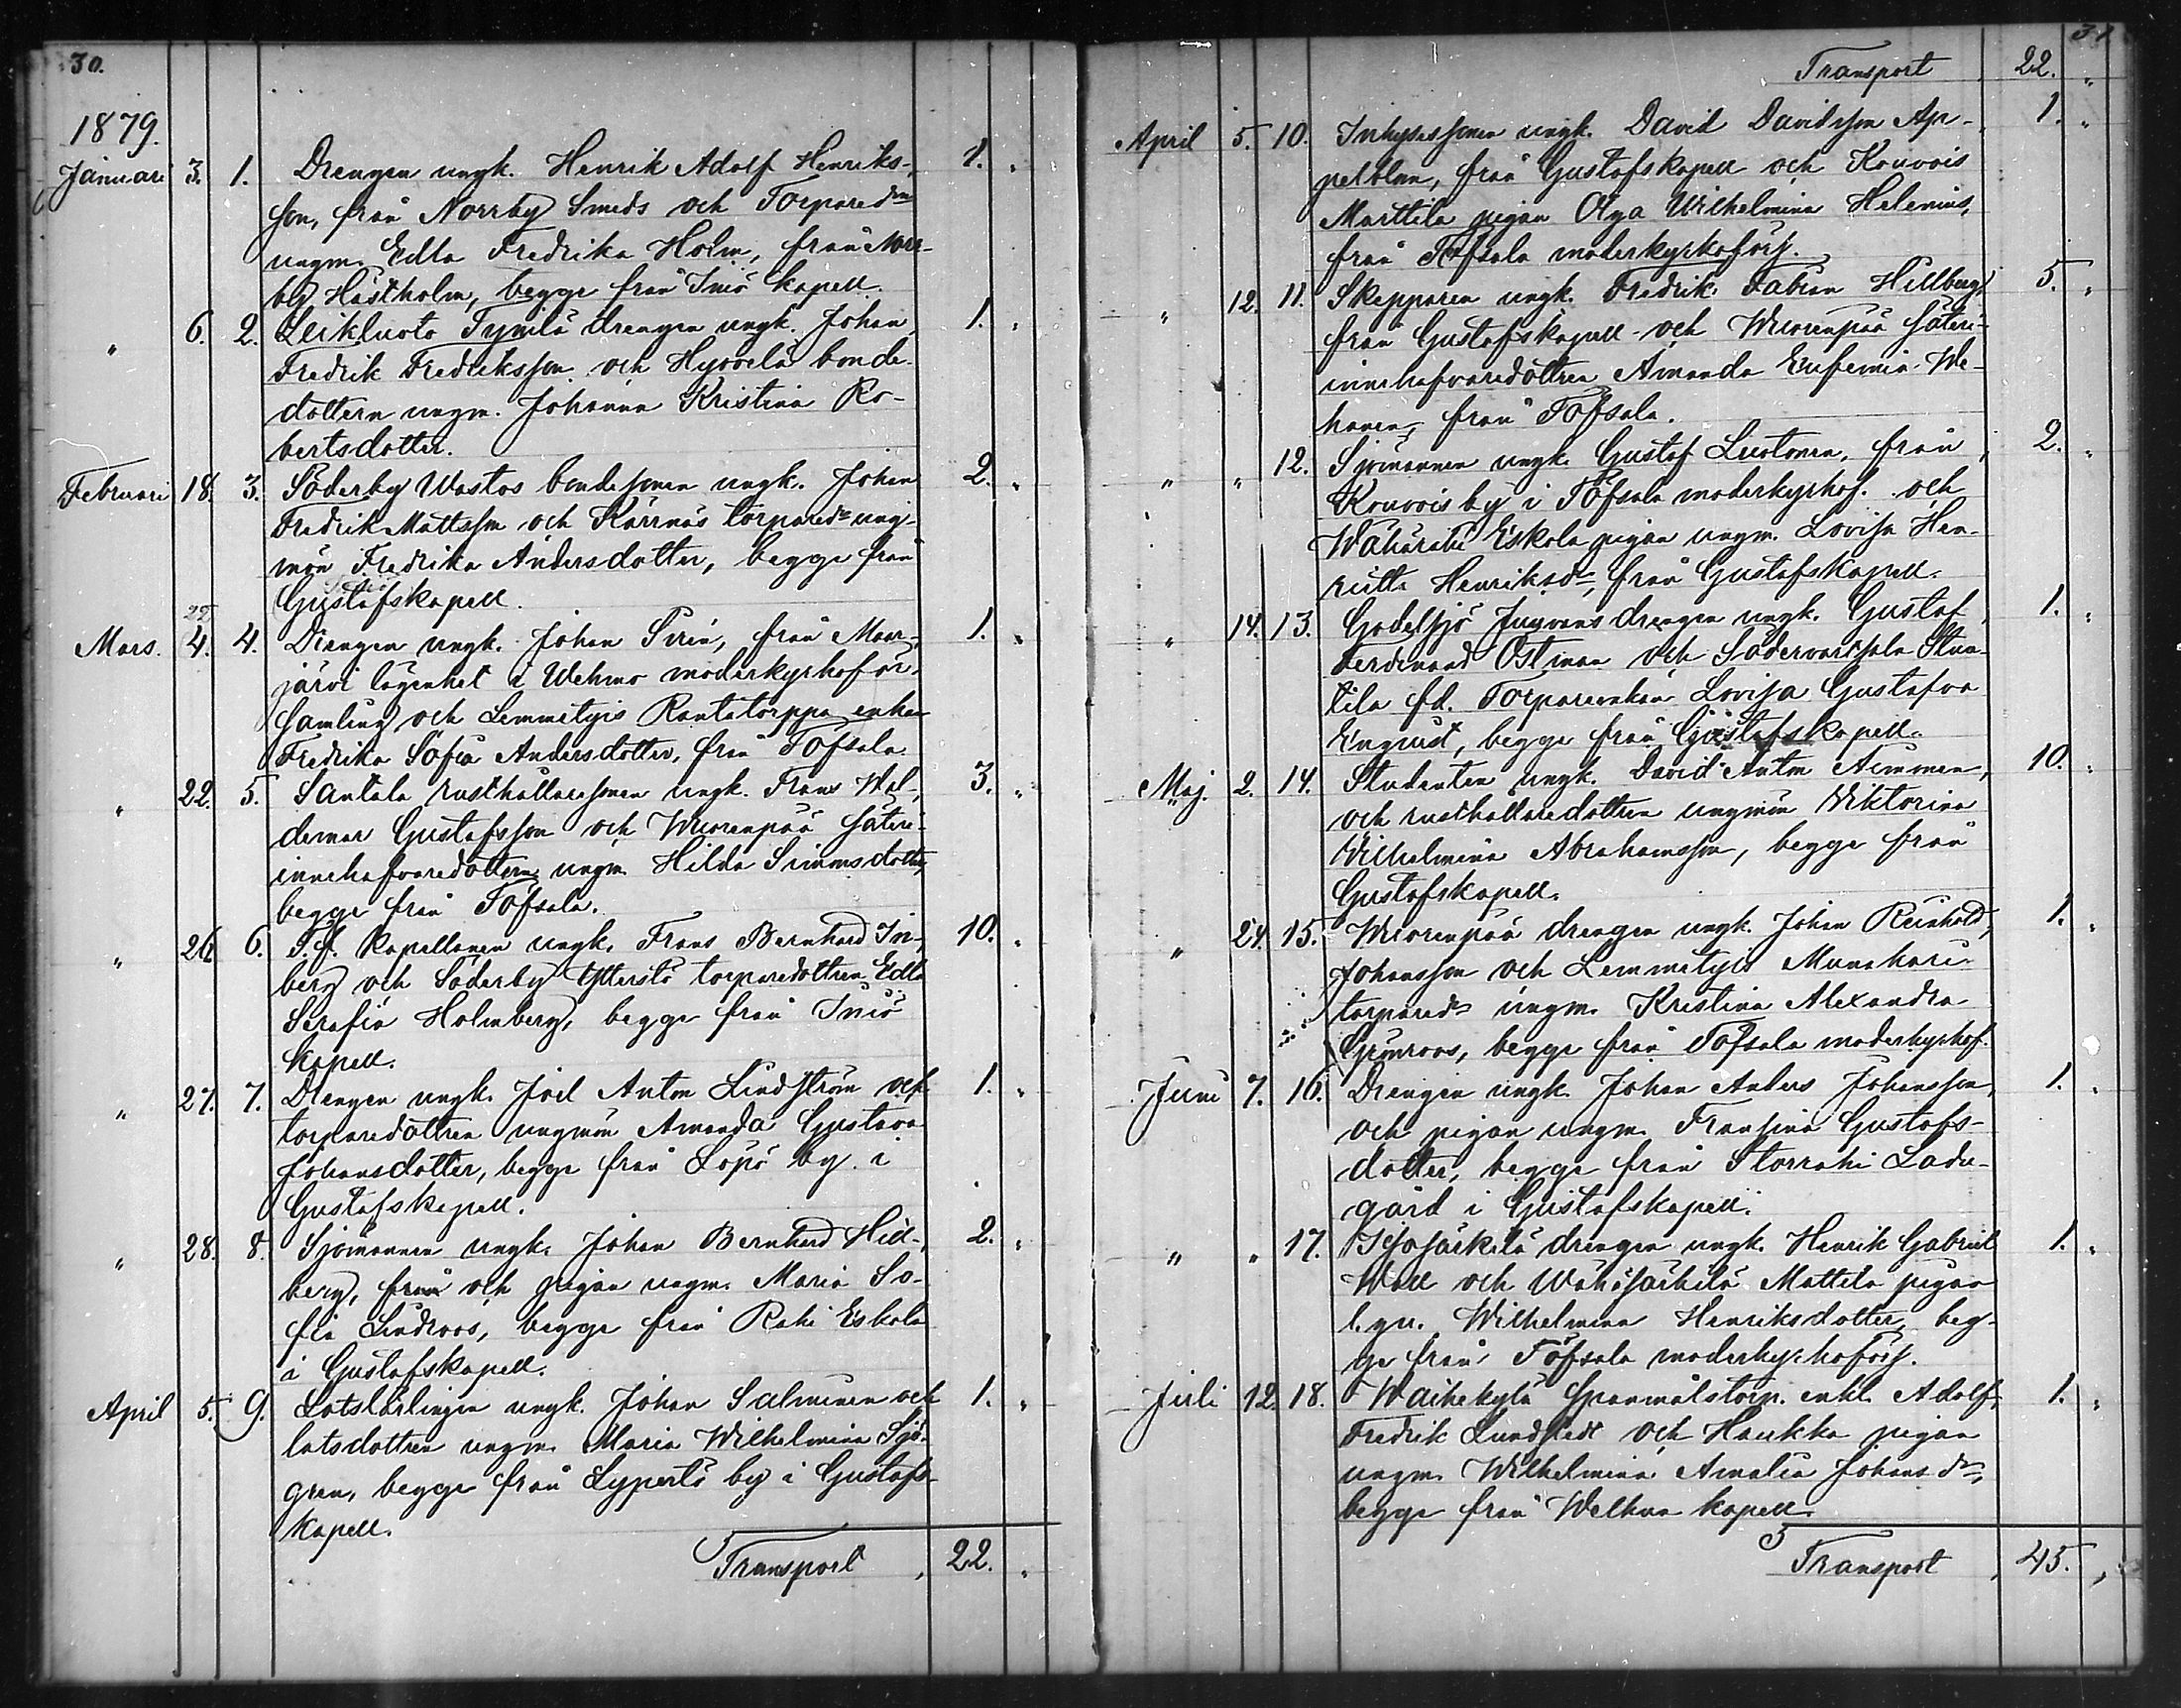 30.
1879.
Januari 3. 1. Drengen ungk. Henrik Adolf Henriks- 1. "
son, från Norrby Smeds och Torpared:n
ungm. Edla Fredrika Holm, från Norr-
by Hästholm, begge från Iniö kapell.
" 6. 2. Leikluoto Tynilä drengen ungk. Johan 1. "
Fredrik Fredriksson och Hyvvelä bonde-
dottern ungm. Johanna Kristina Ro-
bertsdotter.
Februari 18. 3. Söderby Wastos bondesonen ungk. Johan 2. "
Fredrik Mattsson och Kärrnäs torpared:n ung-
mön Fredrika Andersdotter, begge från
Gustafskapell.
22
Mars. 4. 4. Drengen ungk. Johan Sirén, från Maar- 1. "
järvi lägenhet i Wehmo moderkyrkoför-
samling och Lemmetyis Rantatorppa enkan
Fredrika Sofia Andersdotter, från Töfsala
" 22. 5. Santala rusthållaresonen ungk. Frans Wal- 3. "
demar Gustafsson och Wuorenpää säteri-
innehafvaredottern ungm. Hilda Simonsdotter,
begge från Töfsala.
" 26. 6. T.f. Kapellanen ungk. Frans Bernhard In- 10. "
berg och Söderby Ytterstö torparedottren Edla
Serafia Holmberg, begge från Iniö
Kapell.
" 27. 7. Drengen ungk. Joel Anton Lindström och 1. "
torparedottren ungmön Amanda Gustava
Johansdotter, begge från Lopö by i
Gustafskapell.
" 28. 8. Sjömannen ungk. Johan Bernhard Hill- 2. "
berg, från och pigan ungm. Maria So-
fia Lindroos, begge från Rahi Eskola
i Gustafskapell.
April 5. 9. Lotslärlingen ungk. Johan Salminen och 1. "
lotsdottren ungm. Maria Wilhelmina Sjö-
gren, begge från Lypertö by i Gustafs-
kapell.
Transport 22. "
31
Transport 22. "
April 5. 10. Inhysessonen ungk. David Davidsson Ap- 1. "
pelblom, från Gustafskapell och Kouvois
Marttila pigan Olga Wilhelmina Helenius,
från Töfsala moderkyrkoförs.
" 12. 11. Skepparen ungk. Fredrik Fabian Hillberg 5. "
från Gustafskapell och Wuorenpää säteri-
innehafvaredottren Amanda Eufemia We-
hanen, från Töfsala.
" " 12. Sjömannen ungk. Gustaf Luotonen, från 2. "
Kouvois by i Töfsala moderkyrkof. och
Wähärahi Eskola pigan ungm. Lovisa Hen-
riitta Henriksd:r, från Gustafskapell.
" 14. 13. Godelsjö Jungvans drengen ungk. Gustaf 1. "
Ferdinand Östman och Södervartsala Stun-
tila fd. Torpareenkan Lovisa Gustafva
Enqvist, begge från Gustafskapell.
Maj. 2. 14. Studenten ungk. David Anton Aimonen, 10. "
och rusthållaredottren ungmön Viktorina
Wilhelmina Abrahamsson, begge från
Gustafskapell.
" 24. 15. Wuorenpää drengen ungk. Johan Reinhold 1. "
Johansson och Lemmetyis Munakari
torpared:n ungm. Kristina Alexandra
Grönroos, begge från Töfsala moderkyrkof.
Juni 7. 16. Drengen ungk. Johan Anders Johansson, 1. "
och pigan ungm. Fransina Gustafs-
dotter, begge från Storrahi Ladu-
gård i Gustafskapell.
" " 17. Isojärkilä drengen ungk. Henrik Gabriel 1. "
Wall och Wähäjärkilä Mattila pigan
l. qu. Wilhelmina Henriksdotter, beg-
ge från Töfsala moderkyrkoförs.
Juli 12. 18. Waihekylä Spanmålstorp. enkl. Adolf 1. "
Fredrik Lundstedt och Haukka pigan
ungm. Wilhelmina Amalia Johansd:r,
begge från Welkua kapell.
Transport 45. "